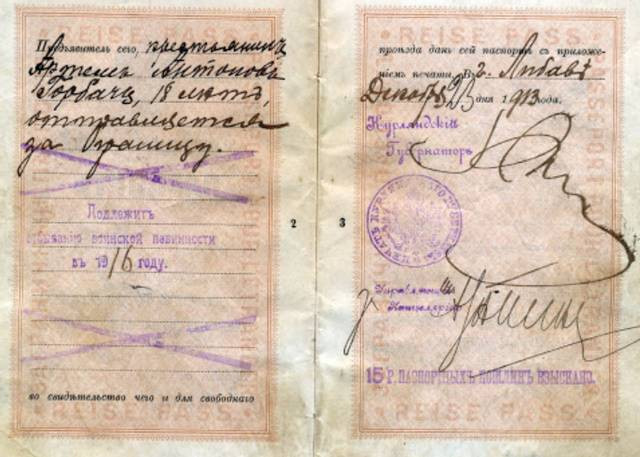 REISE PASS
Предъявитель сего, крестьянинъ
Артемъ Антоновъ
Горбачъ, 18 лѣтъ,
отправляется
за границу.
Подлежитъ
воинской повинности
въ 1916 году.
во свидѣтельство чего и для свободнаго
2
REISE PASS
проѣзда данъ сей паспортъ съ приложе-
ніемъ печати. В г. Либавѣ
Декабря 23 дня 1913 года.
Курляндскій
Губернаторъ
Управляющій
Канцеляріею
15 Р. ПАСПОРТНЫХЪ ПОШЛИНЪ ВЗЫСКАНЫ.
REISE PASS
3